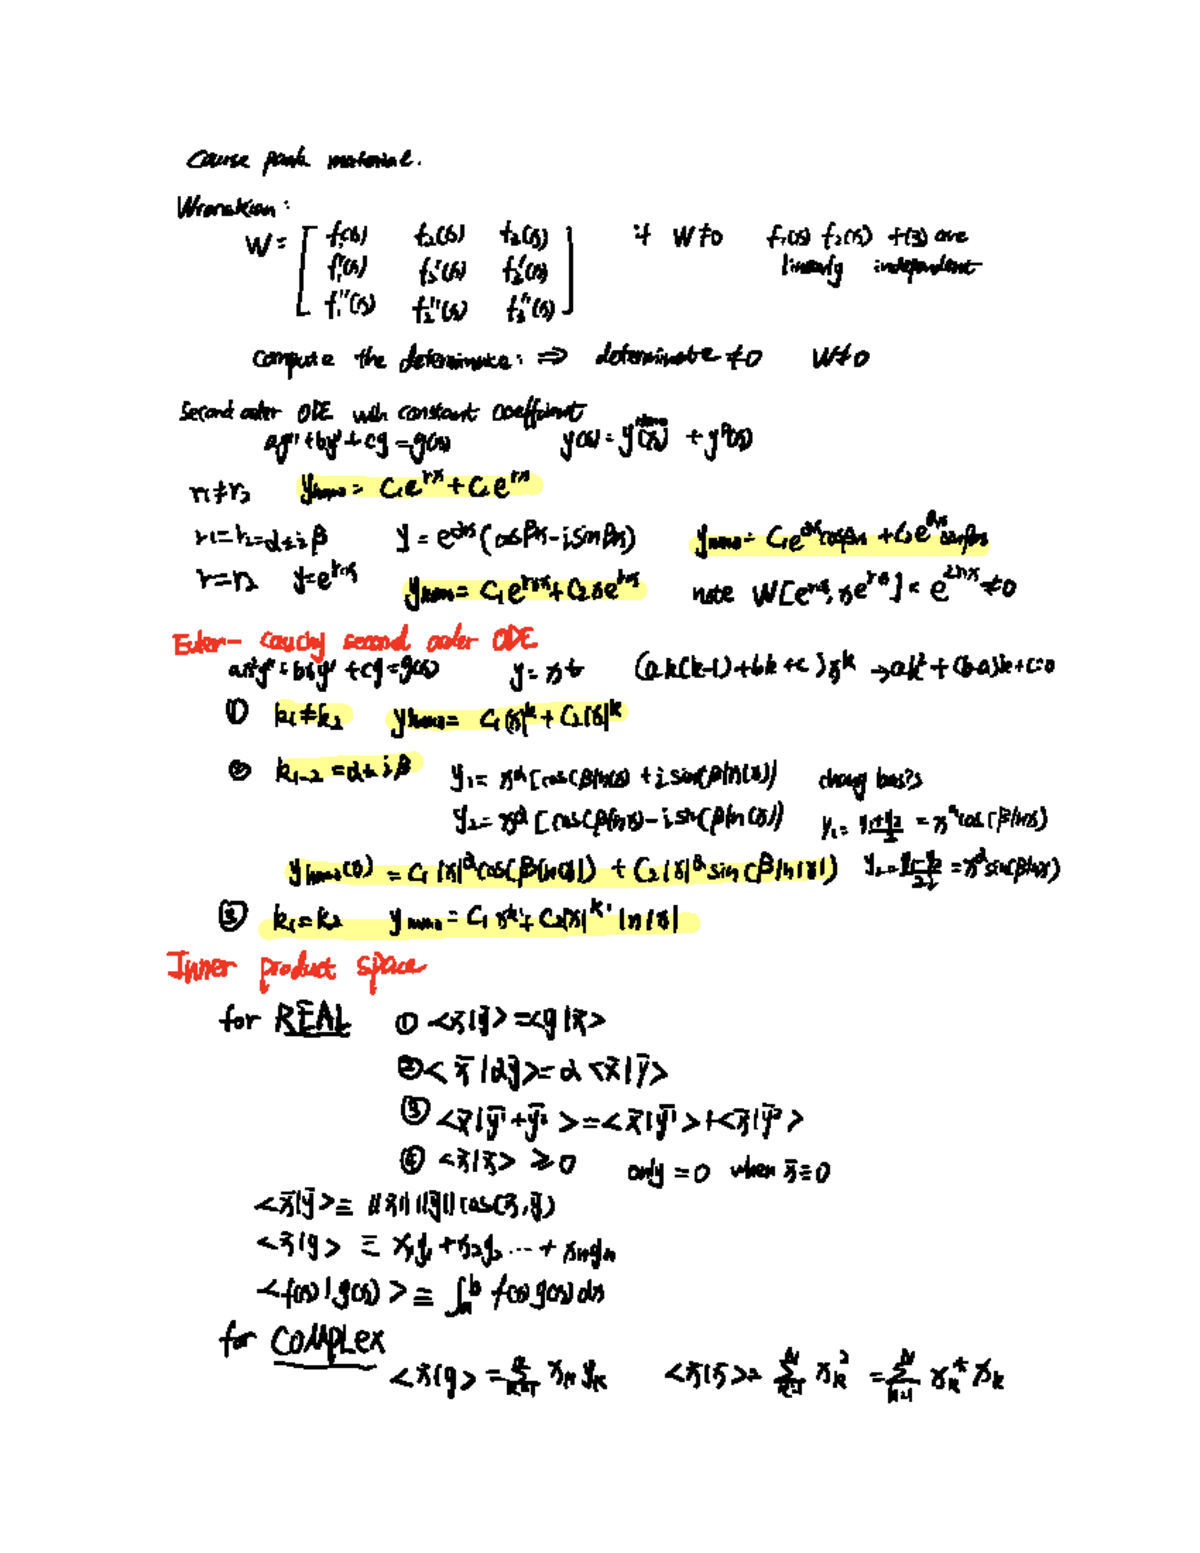 Cause pack material.
Wronskian:
W = [ f₁(x) f₂(x) f₃(x)
f₁'(x) f₂'(x) f₃'(x)
f₁''(x) f₂''(x) f₃''(x) ]
if W≠0 f₁(x) f₂(x) f(3) are
linearly independent
compute the : ⇒ determinate ≠0 W≠0
Second order ODE with constant coefficient
ay''+by'+cy=g(x) y(x)=y(x) + yᴾ(x)
r₁≠r₂ y = C₁e^{rx}+C₂e^{rx}
r₁=r₂=α±iβ y=e^{αx}(cosβx-isinβx) y = C₁e^{αx}cosβx + C₂e^{αx}sinβx
r=r₂ y=e^{rx} y = C₁e^{r₁x}+C₂xe^{r₁x} note W[e^{rx}, xe^{rx}] = e^{2r₁x}≠0
Euler- Cauchy second order ODE
ax²y''+bxy'+cy=g(x) y=x^k (ak(k-1)+bk+c)x^k →ak²+(b-a)k+c=0
① k₁≠k₂ y = C₁|x|^k+C₂|x|^k
② k₁₋₂=α±iβ y₁= x^α[cos(βln(x))+isin(βln(x))] change basis
y₂=x^α[cos(βln(x))-isin(βln(x))] y₁= (y₁+y₂)/2 = x^α cos(βlnx)
y(x) = C₁|x|^α cos(βln|x|) + C₂|x|^α sin(βln|x|) y₂=(y₁-y₂)/2i = x^α sin(βlnx)
③ k₁=k₂ y = C₁x^{k₁}+C₂|x|^{k₁} ln|x|
Inner product space
for REAL ① <x̄|ȳ> =<ȳ|x̄>
②< x̄|αȳ>=α<x̄|ȳ>
③ <x̄|ȳ¹+ȳ²>=<x̄|ȳ¹>+<x̄|ȳ²>
④ <x̄|x̄> ≥0 only =0 when x̄=0
<x̄|ȳ>≡ ||x̄|| ||ȳ||cos(x̄,ȳ)
<x̄|y> ≡ x₁y₁+x₂y₂...+xₙyₙ
<f(x)|g(x)>≡ ∫ₐᵇ f(x)g(x)dx
for COMPLEX
<x̄|y> = Σ xₖyₖ <x̄|x̄>= Σ_{k=1}^{N} xₖ² = Σ_{k=1}^{N} xₖ* xₖ